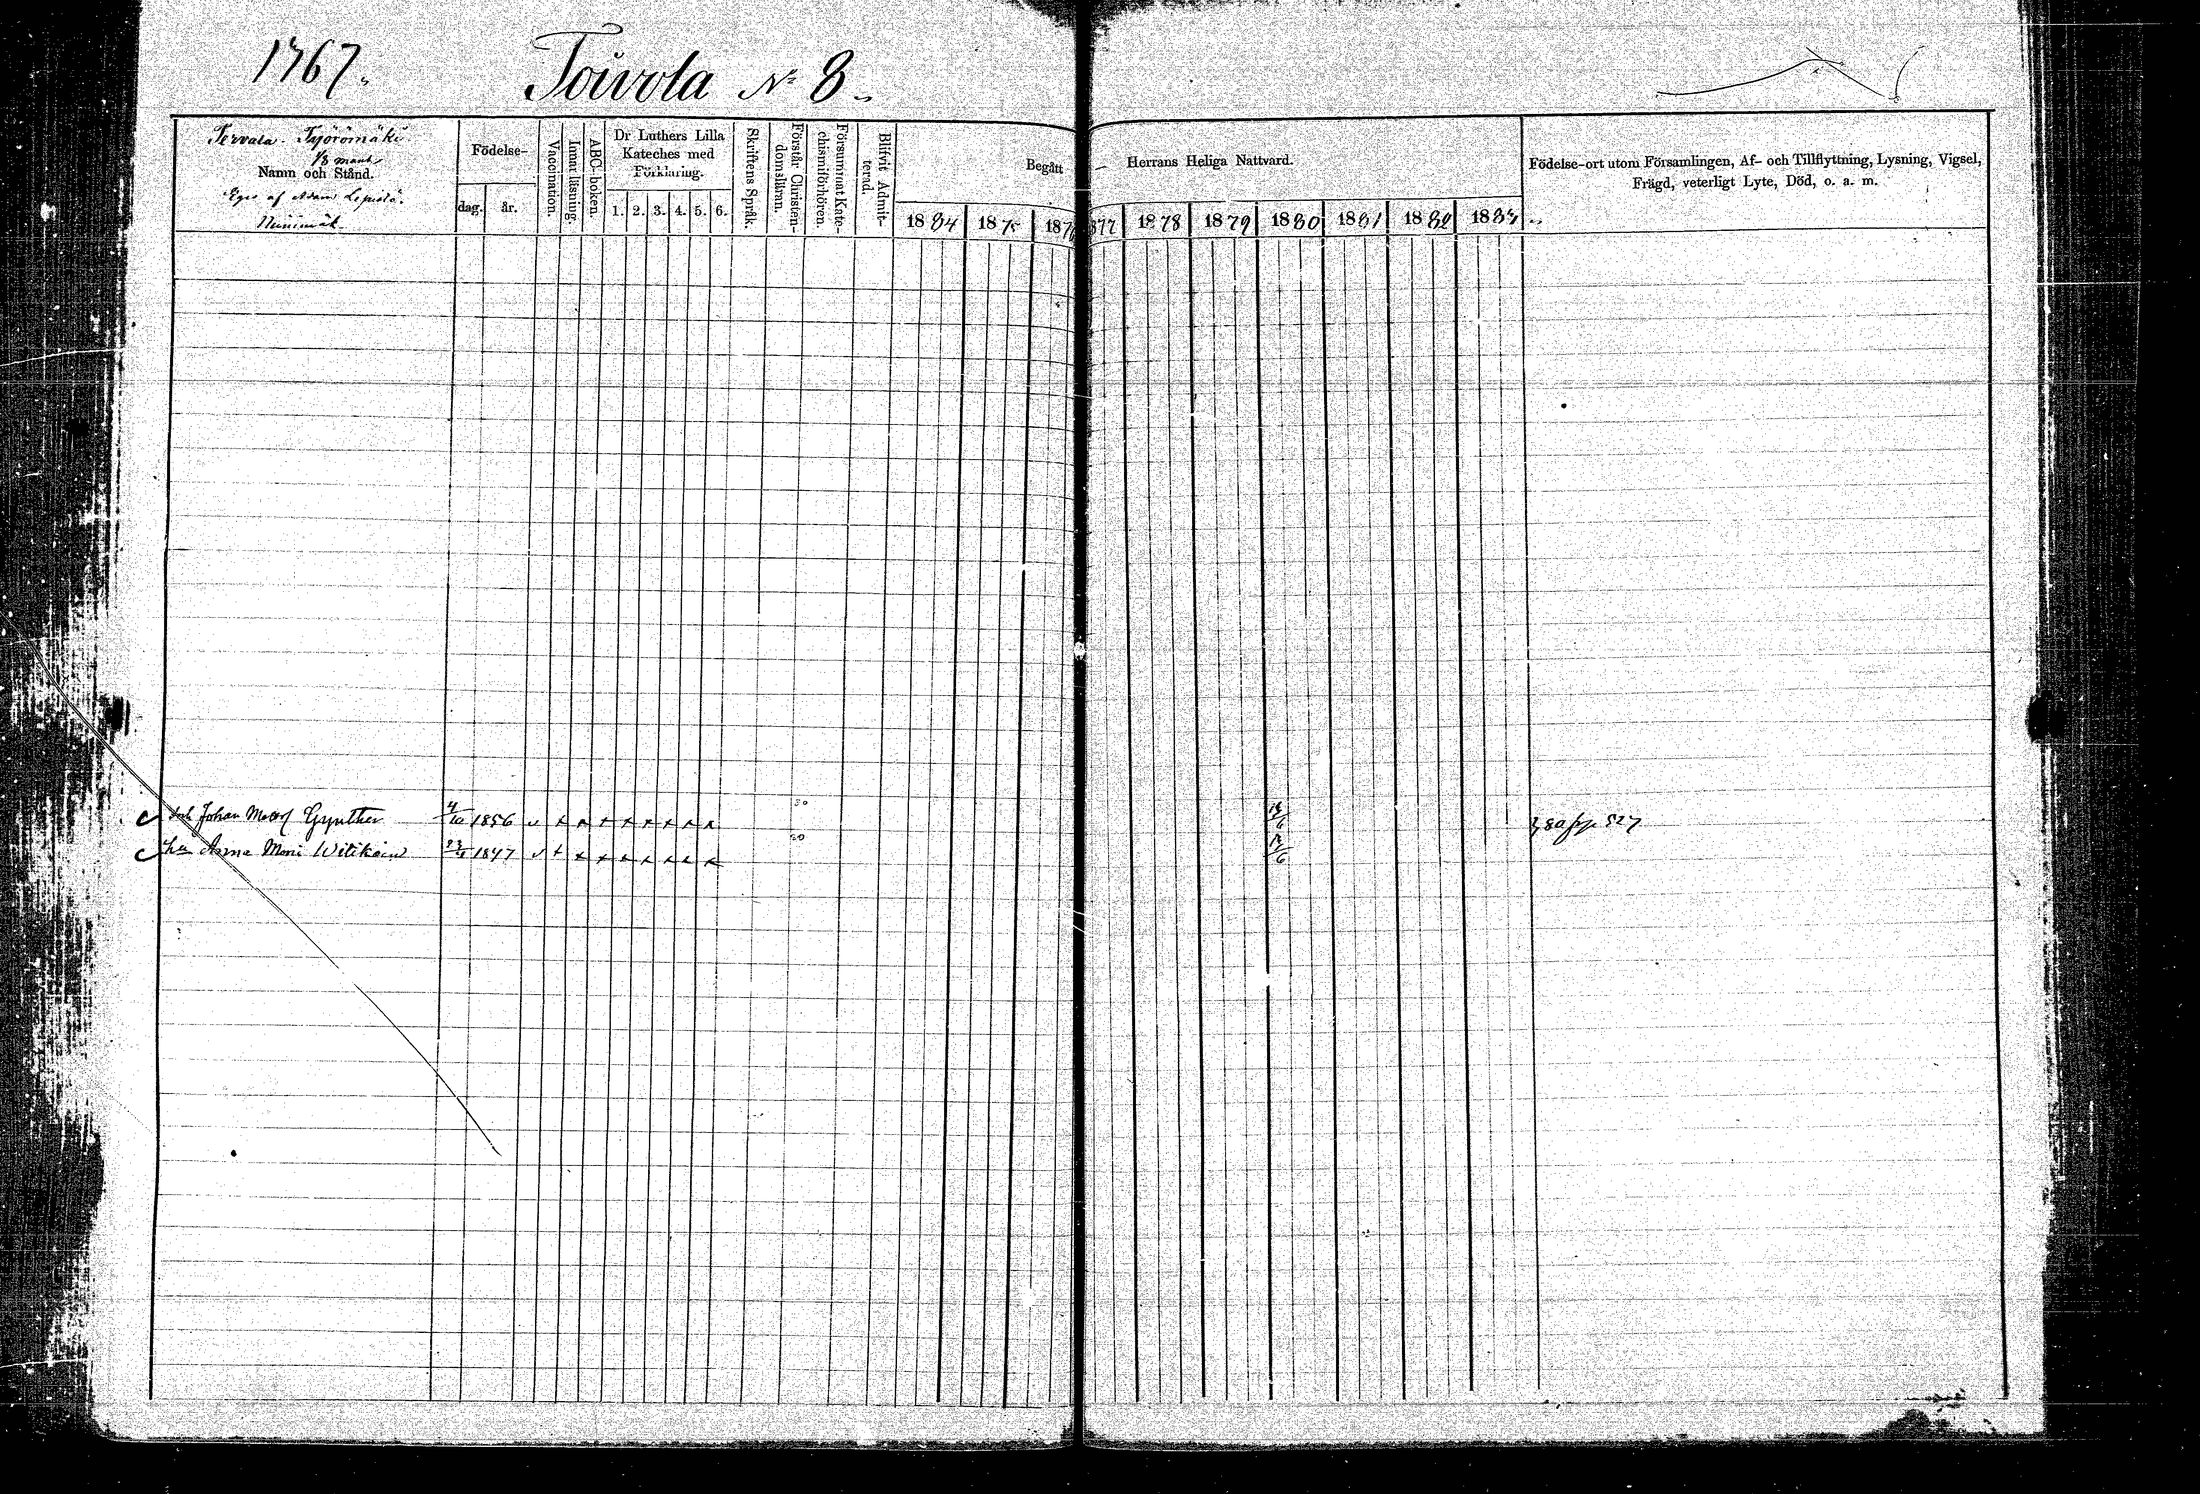 1767.
Toivola № 8.
Tervala. Työrömäki.
1/8 mant.
Namn och Stånd.
Eges af Adam Lepistö.
Födelse-
dag. år.
Vaccination.
Innanläsning.
ABC-boken.
Dr Luthers Lilla
Kateches med
Förklaring.
1. 2. 3. 4. 5. 6.
Skriftens Språk.
Förstår Christen-
domsläran.
Försummat Kate-
chismiförhören.
Blifvit Admit-
terad.
Begått Herrans Heliga Nattvard.
1884 1875 1876 1877 1878 1879 1880 1881 1882 1883
Födelse-ort utom Församlingen, Af- och Tillflyttning, Lysning, Vigsel,
Frägd, veterligt Lyte, Död, o. a. m.
Johan Gynther 4/10 1856 v x x x x x x x x 80 13/6 80 527
Hu Anna Witikain 23/4 1847 v x x x x x x x x 80 13/6